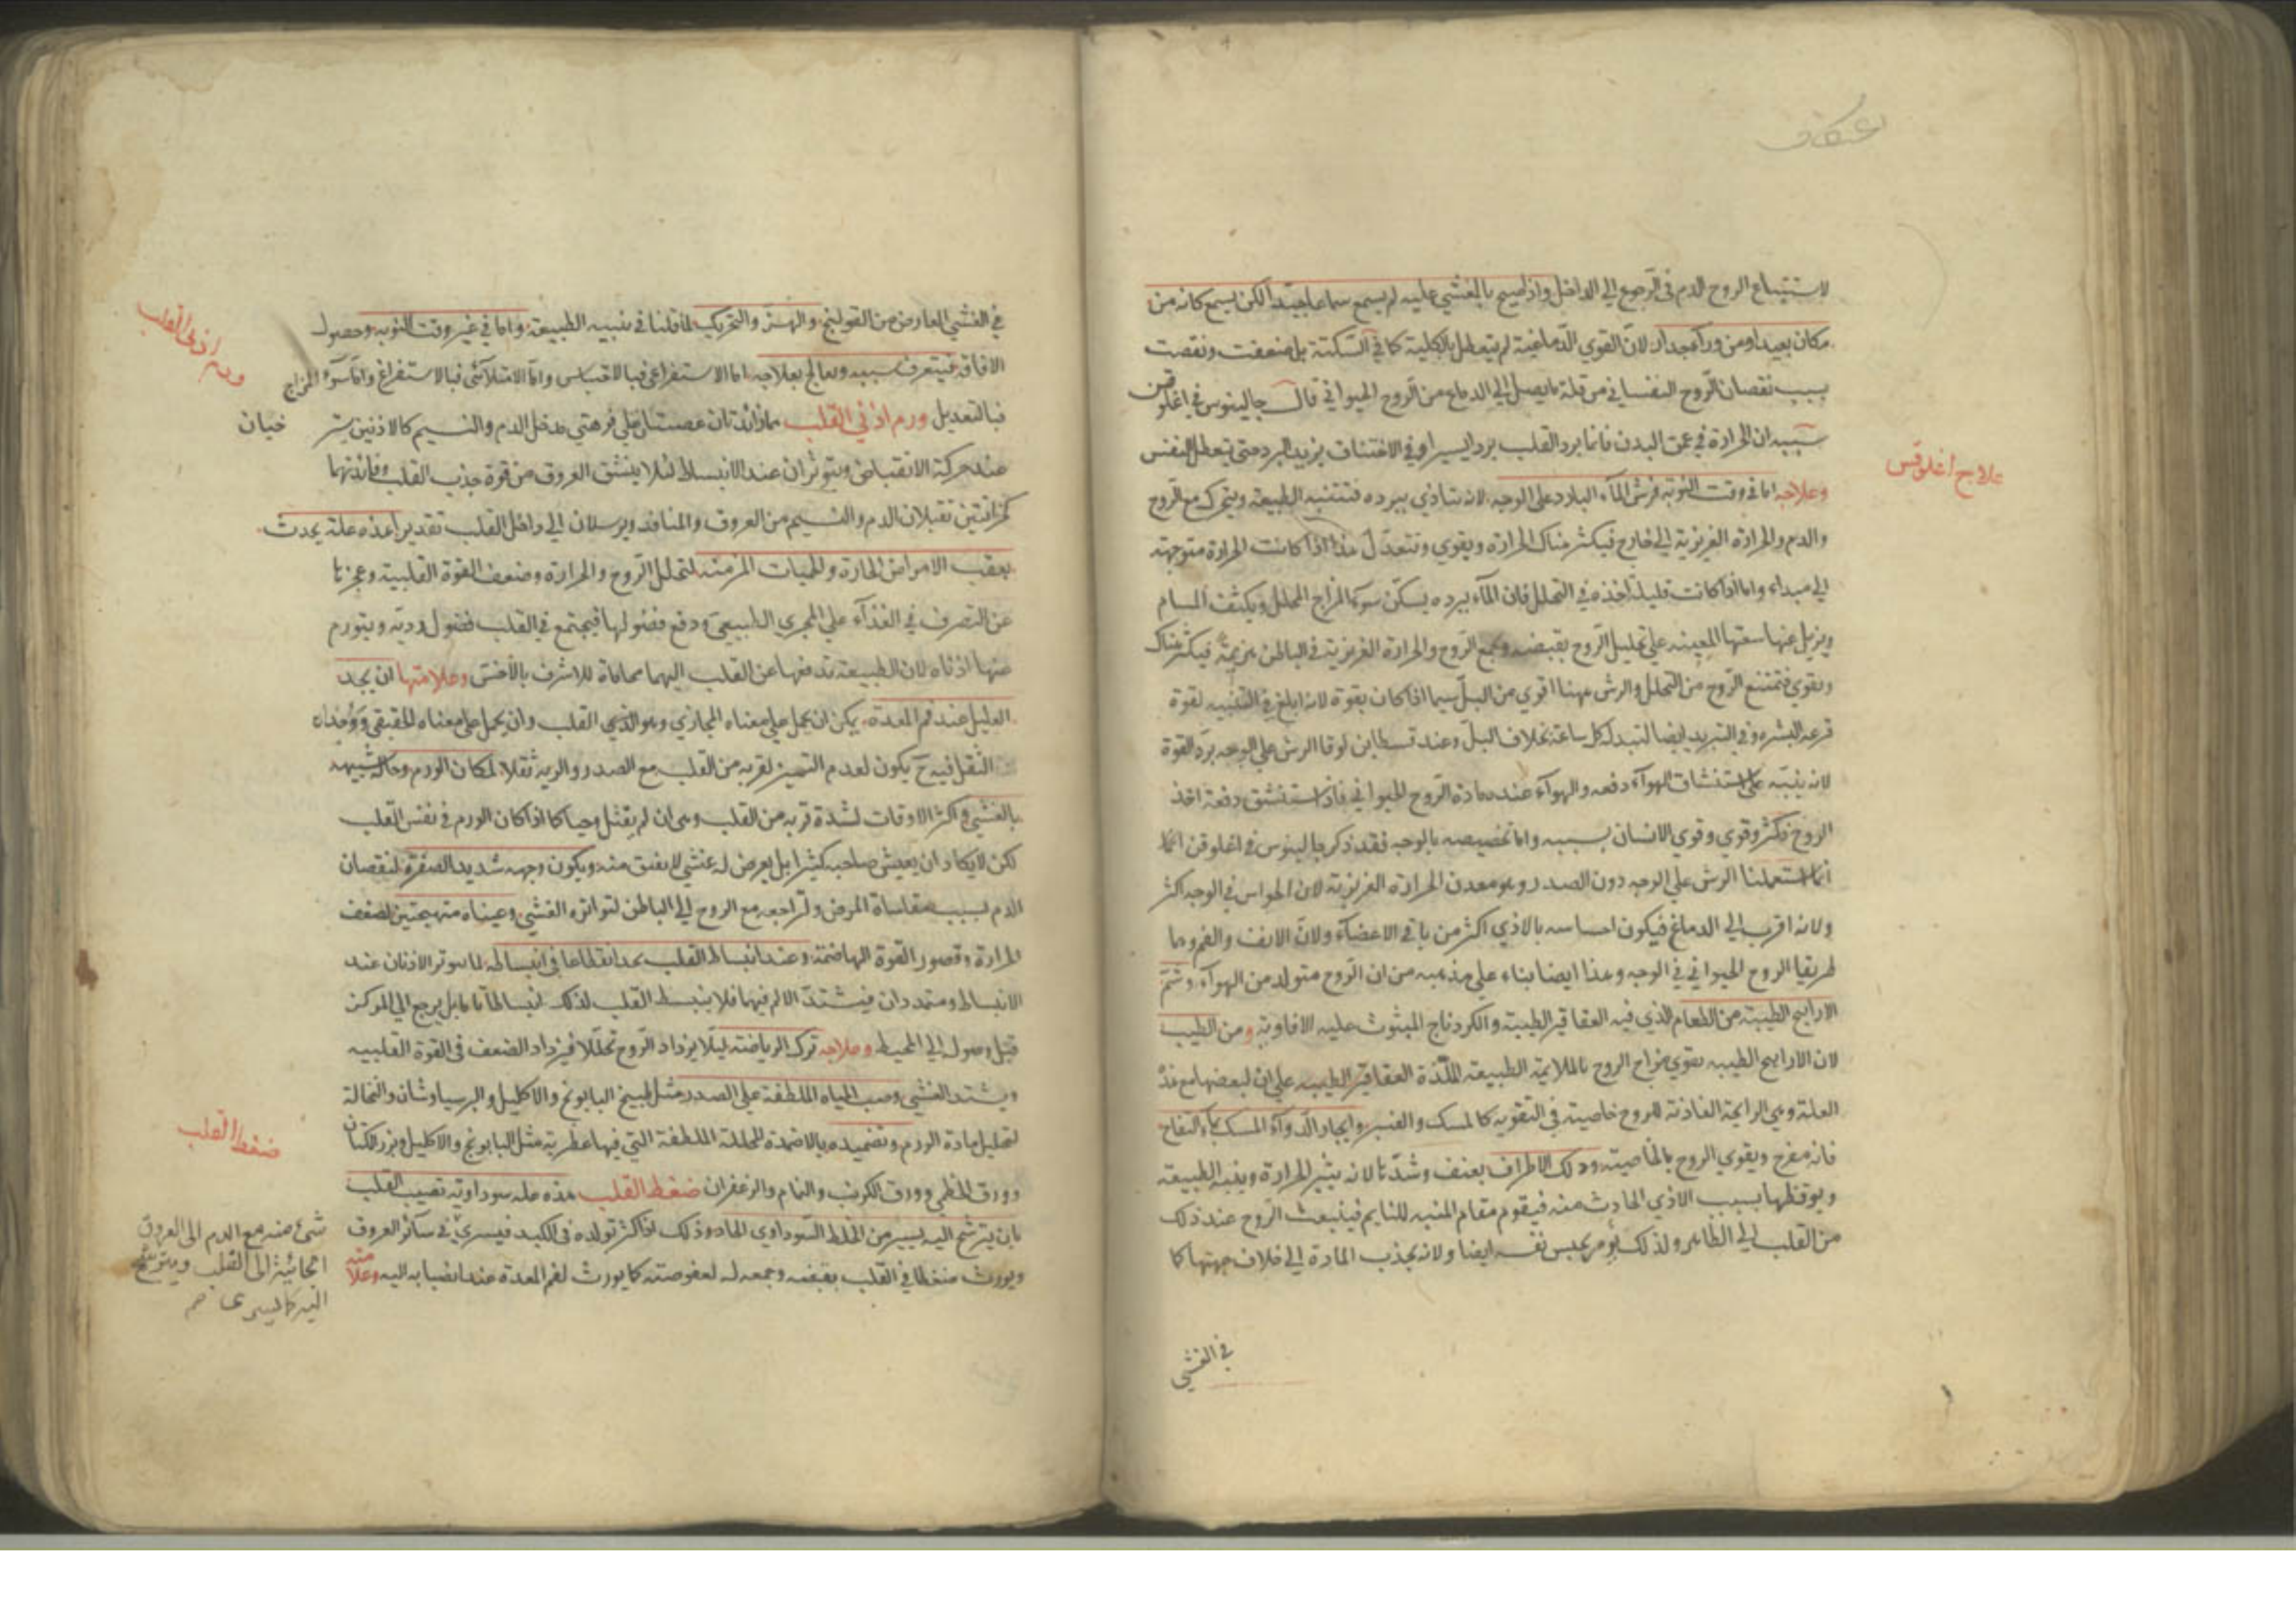 لاستتباع الروح الدم فى الرجوع الى الداخل واذا صيح بالمغشي عليه لم يسمع سماعا جيدا لكن يسمع كانه من
مكان بعيد او من ورآء جدار لان القوي الدماغية لم يتعطل بالكلية كما في السكتة بل ضعفت ونقصت
بسبب نقصان الروح النفساني من قلة ما يصل الي الدماغ من الروح الحيواني قال جالينوس في اغلوقن
سببه ان الحرارة في عمق البدن فانما برد القلب برد اليسيرا وفي الاختناق يزيد البرد حتى يتعطل النفس
علاج اغلوقس
وعلاجه اما في وقت النوبة فرش المآء البارد على الوجه لانه يتاذي ببرده فتتنبه الطبيعة ويتحرك مع الروح
والدم والحرارة الغريزية الي خارج فيكثر هناك الحرارة ويقوي وتتعدل هذا اذا كانت الحرارة متوجهة
الي مبداء واما اذا كانت قليلة اخذه في التحلل فان المآء ببرده يسكن سوء المزاج المحلل ويكثف المسام
ويزيل عنها سعتها المعينه على تحليل الروح بقبضه ويجمع الروح والحرارة الغريزية في الباطن بهزيمة فيكثر هناك
ويقوي فتمتنع الروح من التحلل والرش ههنا اقوي من البل سيما اذا كان بقوة لانه ابلغ في التنبيه لقوة
قرعه البشره وفي التبريد ايضا لتبدله كل ساعة بخلاف البل وعند قسطا بن لوقا الرش على الوجه يرد القوة
لانه ينبه على استنشاق الهوآء دفعه والهوآء عنده مادة الروح الحيواني فاذا استنشق دفعة اخذ
الروح فكثر وقوي وقوي الانسان بسببه واما تخصيصه بالوجه فقد ذكر جالينوس في اغلوقن انما
انما استعملنا الرش على الوجه دون الصدر وهو معدن الحرارة الغريزية لان الحواس في الوجه اكثر
ولانه اقرب الي الدماغ فيكون احساسه بالاذي اكثر من باقي الاعضآء ولان الانف والفم وهما
طريقا الروح الحيواني في الوجه وهذا ايضا بناء علي مذهبه من ان الروح متولد من الهوآء وشم
الارايح الطيبة من الطعام الذي فيه العقاقير الطيبة والكردناج المبثوث عليه الافاويه ومن الطيب
لان الارايح الطيبه تقوي مزاج الروح بالملايمة الطبيعة الملذة العقاقير الطيبه على ان لبعضها مع هذه
العلة وهي الرايحة الغاذية للروح خاصية في التقوية كالمسك والعنبر وايجار الدوآء المسك بمآء التفاح
فانه مفرح ويقوي الروح بالخاصية ودلك الاطراف بعنف وشدها لانه يثير الحرارة وينبه الطبيعة
ويوقظها بسبب الاذي الحادث منه فيقوم مقام المنبه للنايم فينبعث الروح عند ذلك
من القلب الي الظاهر ولذلك يؤمر بحبس نفسه ايضا ولانه يجذب المادة الي خلاف جهتها كما
في الغشي
في الغشي العارض من القولنج والهز والتحريك لما قلنا في تنبيه الطبيعة واما في غير وقت النوبه وحصول
الافاقة فيتعرف سببه ويعالج بعلاجه اما الاستفراغي فبالاحتباس واما الامتلآئي فبالاستفراغ واما سوء المزاج
ورم اذني القلب
فبالتعديل ورم اذني القلب هما زائدتان عصبتان على فوهتي مدخل الدم والنسيم كالاذنين يسترخيان
عند حركة الانقباض ويتوتران عند الانبساط لئلا ينشق العروق من قوة جذب القلب وفائدتهما
كخزانتين تقبلان الدم والنسيم من العروق والمنافذ ويرسلان الي داخل القلب بتقدير هذه علة يحدث
بعقب الامراض الحارة والحميات المزمنه لتحلل الروح والحرارة وضعف القوة القلبية وعجزها
عن التصرف في الغذآء على المجري الطبيعي ودفع فضولها فيجتمع في القلب فضول ردية ويتورم
عنها اذناه لان الطبيعة تدفعها عن القلب اليهما محاماة للاشرف بالاخس وعلامتها ان يجد
العليل عند فم المعدة يمكن ان يحمل على معناه المجازي وهو الذي القلب وان يحمل على معناه الحقيقي ووجدان
الثقل فيه ح يكون لعدم التميز لقربه من القلب مع الصدر والريه ثقلا لمكان الورم وحالة شبيهه
بالغشي في اكثر الاوقات لشدة قربه من القلب وهى ان لم يقتل وحيا كما اذا كان الورم في نفس القلب
لكن لا يكاد ان يعيش صاحبه كثيرا بل يعرض له غشي لا يفيق منه ويكون وجهه شديد الصفرة لنقصان
الدم بسبب مقاساة المرض وتراجعه مع الروح الي الباطن لتواتر الغشي وعيناه متهيجتين لضعف
الحرارة وقصور القوة الهاضمة وعند انبساط القلب يجد انقطاعا في انبساطه لما يتوتر الاذنان عند
الانبساط ويتمددان فيشتد الالم فيها فلا ينبسط القلب لذلك انبساطا تاما بل يرجع الي المركز
قبل وصوله الي المحيط وعلاجه ترك الرياضة ليلا يزداد الروح تحللا فيزداد الضعف في القوة القلبيه
ويشتد الغشي وصب المياه الملطفة على الصدر مثل طبيخ البابونج والاكليل والبرسياوشان والنخالة
لتحليل مادة الورم وتضميده بالاضمدة المحللة الملطفة التي فيها عطرية مثل البابونج والاكليل وبزر الكتان
ضغط القلب
وورق الخطمي وورق الكرنب والنمام والزعفران ضغط القلب هذه علة سوداوية تصيب القلب
بان يترشح اليه يسير من الخلط السوداوي الحاد وذلك اذا كثر تولده في الكبد فيسري في سآئر العروق
ويورث ضغطا في القلب بقبضه وجمعه له لعفوصته كما يورث لفم المعدة عند انصبابه اليه وعلامته
شئ منه مع الدم الى العروق
الى القلب ويترشح
اليه